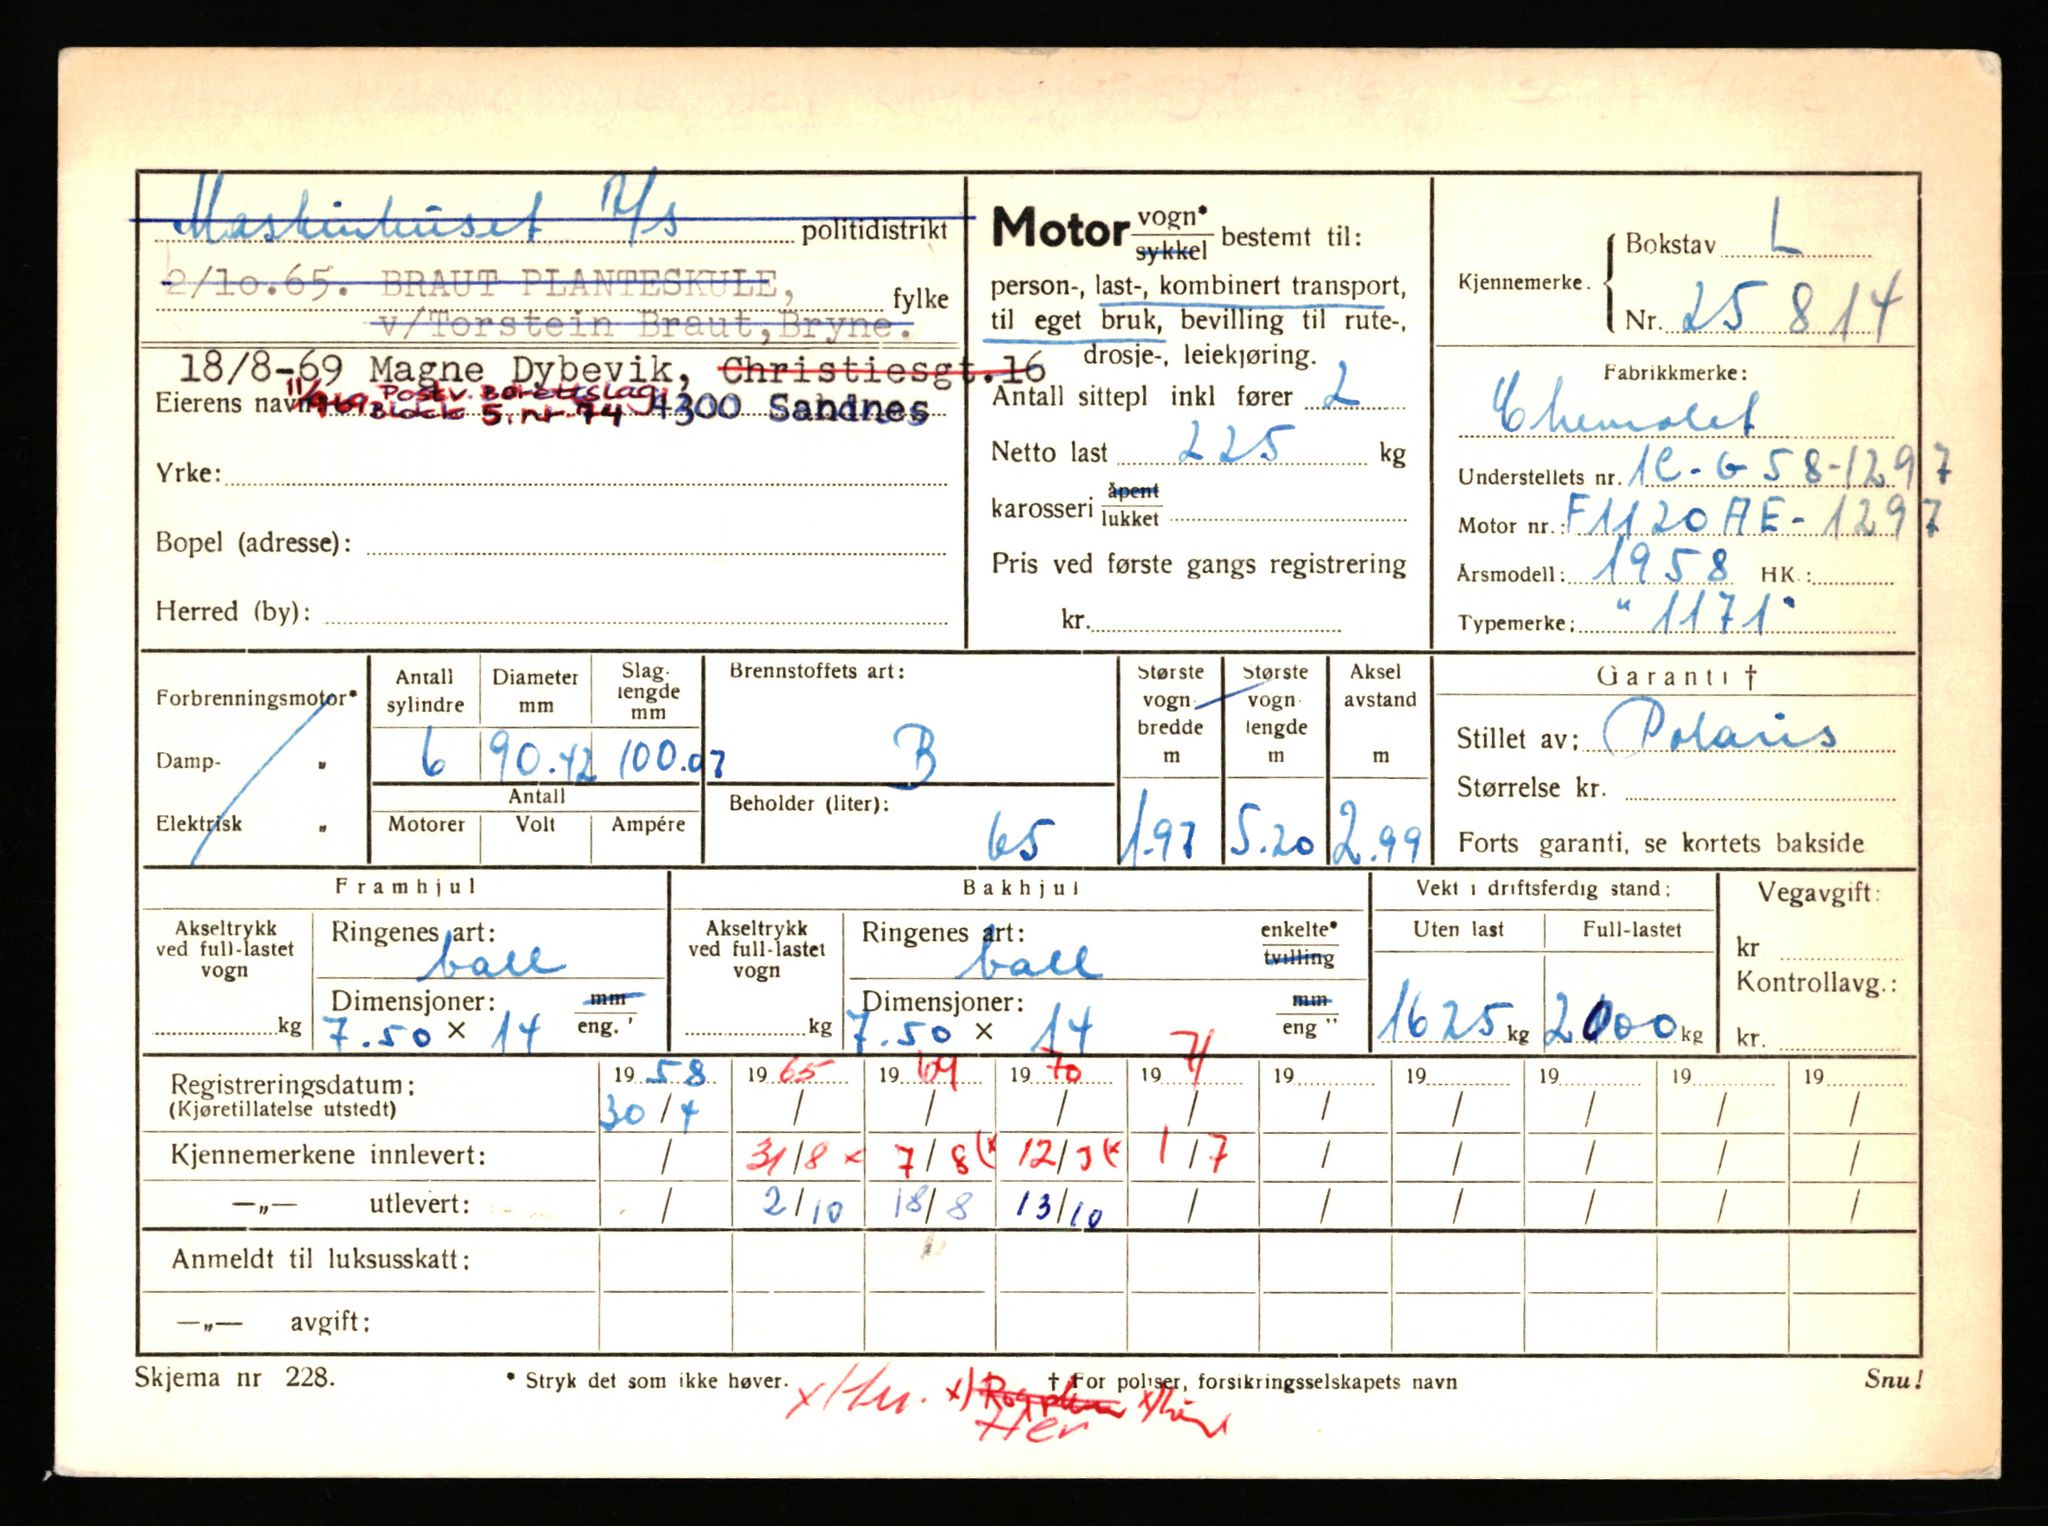 Maskinhuset A/s politidistrikt
2/10.65. BRAUT PLANTESKULE, fylke
v/Torstein Braut, Bryne.
18/8-69 Magne Dybevik, Christiesgt.16
Postv. Borettslag
Eierens navn Block 5. nr 74 4300 Sandnes
Yrke:
Bopel (adresse):
Herred (by):
Motor vogn* sykkel bestemt til:
person-, last-, kombinert transport,
til eget bruk, bevilling til rute-,
drosje-, leiekjøring.
Antall sittepl inkl fører 2
Netto last 225 kg
karosseri åpent lukket
Pris ved første gangs registrering
kr.
Kjennemerke. Bokstav L
Nr. 25 814
Fabrikkmerke:
Chevrolet
Understellets nr. 1C-G58-1297
Motor nr.: F1120AE-1297
Årsmodell: 1958 HK.:
Typemerke: "1171"
Forbrenningsmotor*
Damp- „
Elektrisk „
Antall sylindre 6
Diameter mm 90.42
Slaglengde mm 100.07
Antall
Motorer Volt Ampére
Brennstoffets art:
B
Beholder (liter):
65
Største vogn bredde m 1.97
Største vogn lengde m 5.20
Aksel avstand m 2.99
Garanti †
Stillet av: Polaris
Størrelse kr.
Forts garanti, se kortets bakside
Framhjul
Akseltrykk ved full-lastet vogn
kg
Ringenes art:
ball
Dimensjoner: mm eng. '
7.50 × 14
Bakhjul
Akseltrykk ved full-lastet vogn
kg
Ringenes art: enkelte* tvilling
ball
Dimensjoner: mm eng "
7.50 × 14
Vekt i driftsferdig stand:
Uten last Full-lastet
1625 kg 2000 kg
Vegavgift:
kr
Kontrollavg.:
kr.
Registreringsdatum: 19 58 19 65 19 69 19 70 19 71 19 19 19 19 19
(Kjøretillatelse utstedt) 30/4 / / / / / / / / /
Kjennemerkene innlevert: / 31/8 x 7/8 (x 12/3 (x 1/7 / / / / /
—„— utlevert: / 2/10 18/8 13/10 / / / / / /
Anmeldt til luksusskatt:
—„— avgift:
Skjema nr 228.
* Stryk det som ikke høver.
† For poliser, forsikringsselskapets navn
Snu!
Her